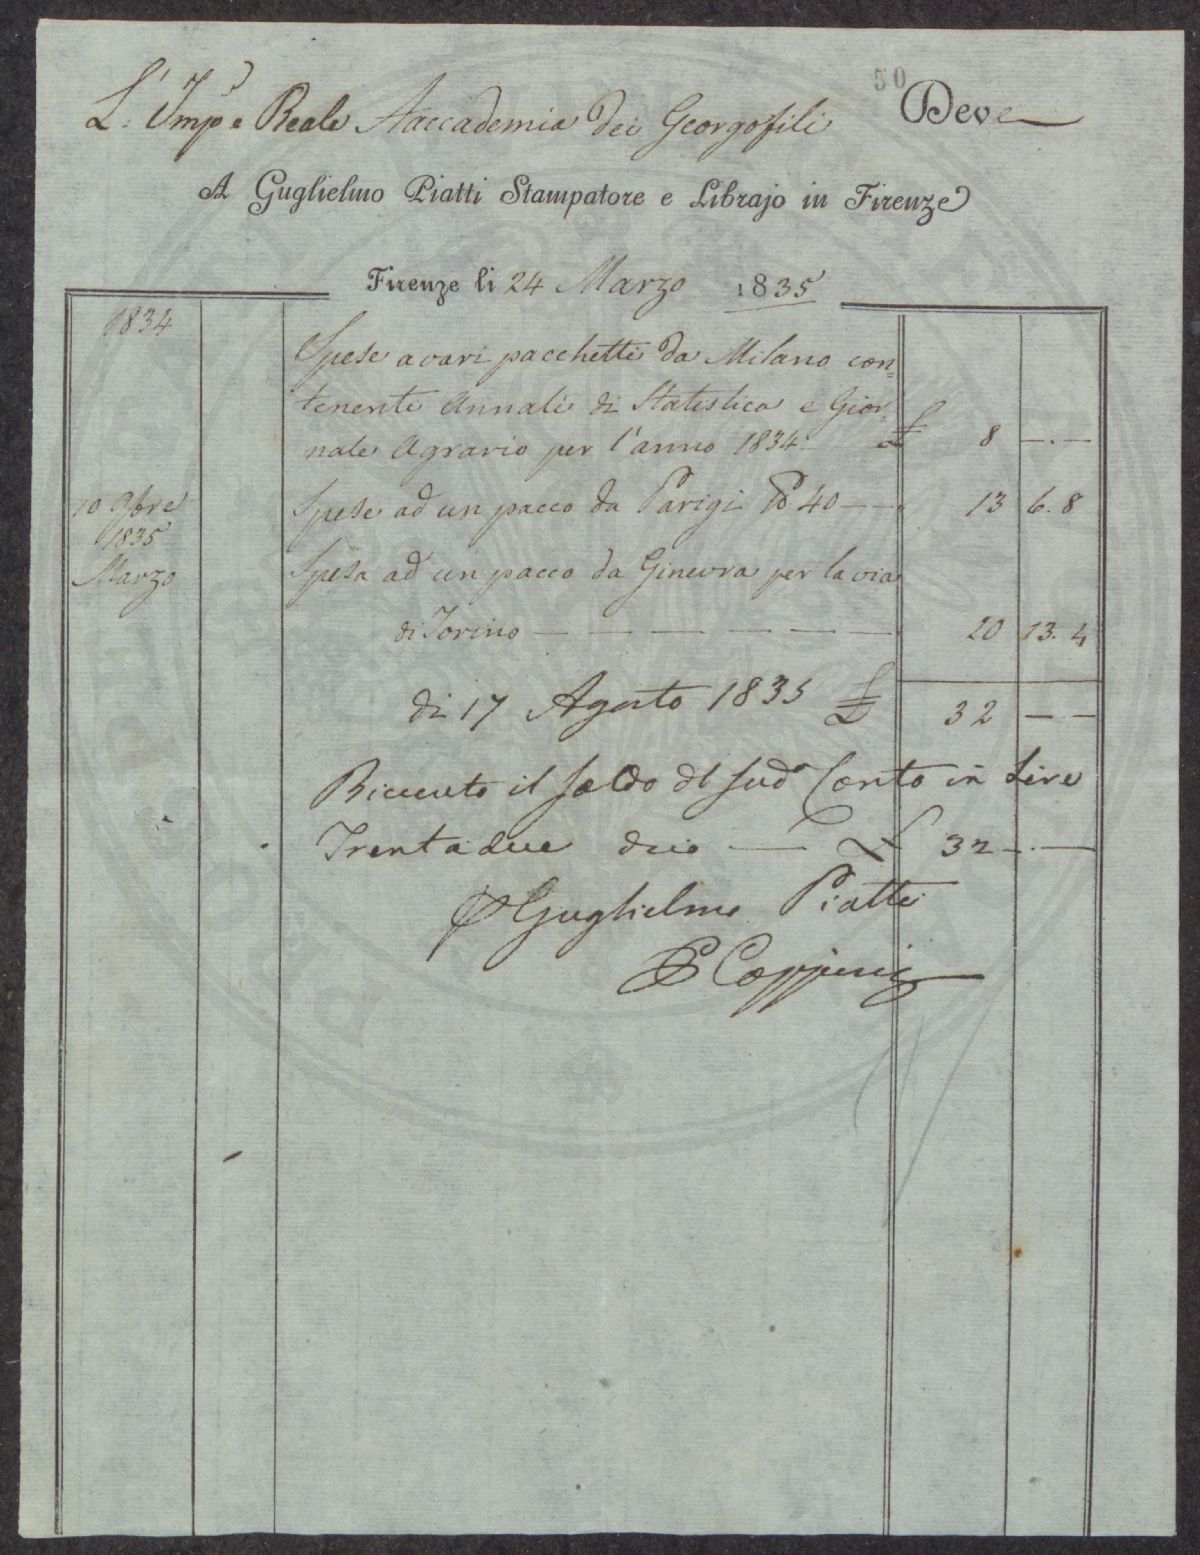 50
L'Imp. e Reale Aaccademia dei Georgofili Deve
A Guglielmo Piatti Stampatore e Librajo in Firenze
Firenze li 24 Marzo 1835
1834
Spese a vari pacchetti da Milano con=
tenenti Annali di Statistica e Gior=
nale Agrario per l'anno 1834 £ 8 —.—
10 9bre Spese ad un pacco da Parigi 40 — 13 6.8
1835
Marzo Spesa ad un pacco da Ginevra per la via
di Torino — — — — — — — 10 13.4
di 17 Agosto 1835 £ 32 — . —
Riceuto il saldo dl sud.o Conto in Lire
Trentadue dico — £ 32 — . —
Guglielmo Piatti